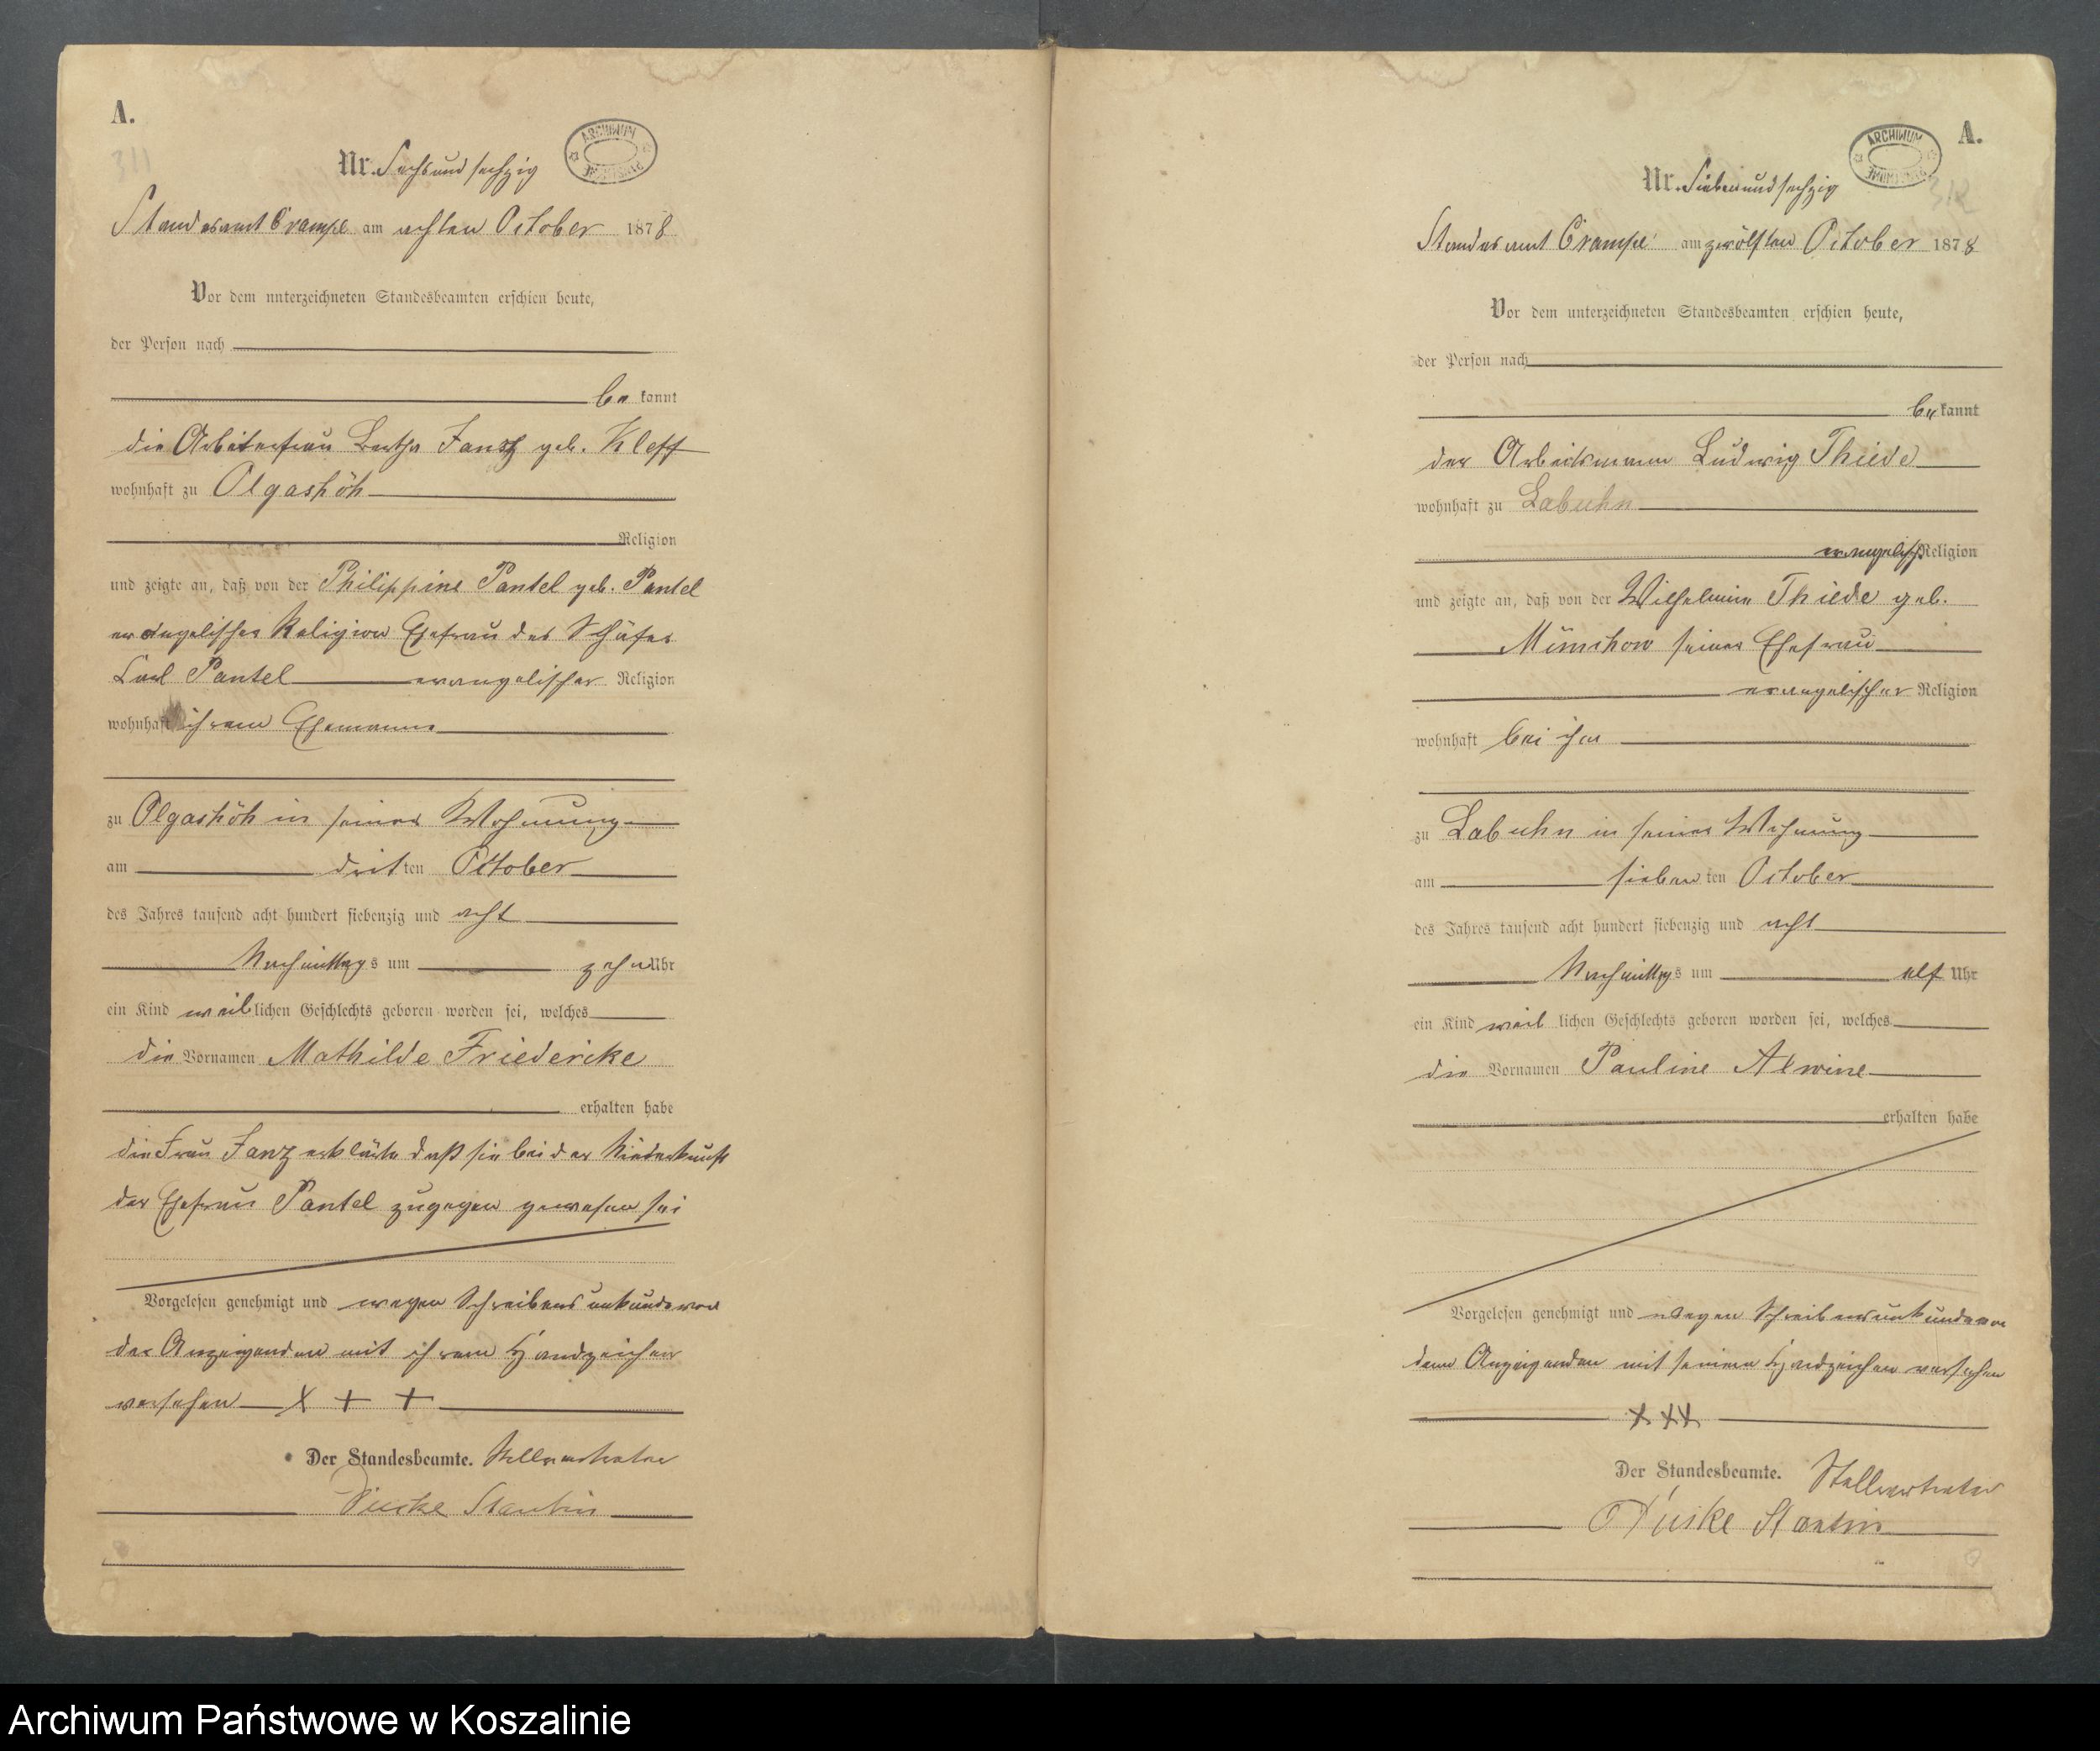 A.
311
Nr. Sechsundsechzig
ARCHIWUM
Standesamt Crampe am achten October 1878
Vor dem unterzeichneten Standesbeamten erschien heute,
der Person nach
be kannt
die Arbeiterfrau Bertha Janz geb. Kleff
wohnhaft zu Olgashöh
Religion
und zeigte an, daß von der Philippine Pantel geb. Pantel
evangelischer Religion Ehefrau des Schäfer
Carl Pantel evangelischer Religion
wohnhaft ihrem Ehemanne
zu Olgashöh in seiner Wohnung
am dritten October
des Jahres tausend acht hundert siebenzig und acht
Nachmittags um zehn Uhr
ein Kind weiblichen Geschlechts geboren worden sei, welches
die Vornamen Mathilde Friedericke
erhalten habe
die Frau Janz erklärte daß sie bei der Niederkunft
der Ehefrau Pantel zugegen gewesen sei
Vorgelesen genehmigt und wegen Schreibensunkunde von
der Anzeigenden mit ihrem Handzeichen
versehen X + +
Der Standesbeamte. Stellvertreter
A.
ARCHIWUM
312
Nr. Siebenundsechzig
Standesamt Crampe am zwölften October 1878
Vor dem unterzeichneten Standesbeamten erschien heute,
der Person nach
be kannt
der Arbeitsmann Ludwig Thiede
wohnhaft zu Labuhn
evangelisch Religion
und zeigte an, daß von der Wilhelmine Thiede geb.
Münchow seiner Ehefrau
evangelischer Religion
wohnhaft bei ihm
zu Labuhn in seiner Wohnung
am siebenten October
des Jahres tausend acht hundert siebenzig und acht
Nachmittags um elf Uhr
ein Kind weiblichen Geschlechts geboren worden sei, welches
die Vornamen Pauline Alwine
erhalten habe
Vorgelesen genehmigt und wegen Schreibensunkunde von
dem Anzeigenden mit seinem Handzeichen versehen
X X X
Der Standesbeamte. Stellvertreter
Archiwum Państwowe w Koszalinie